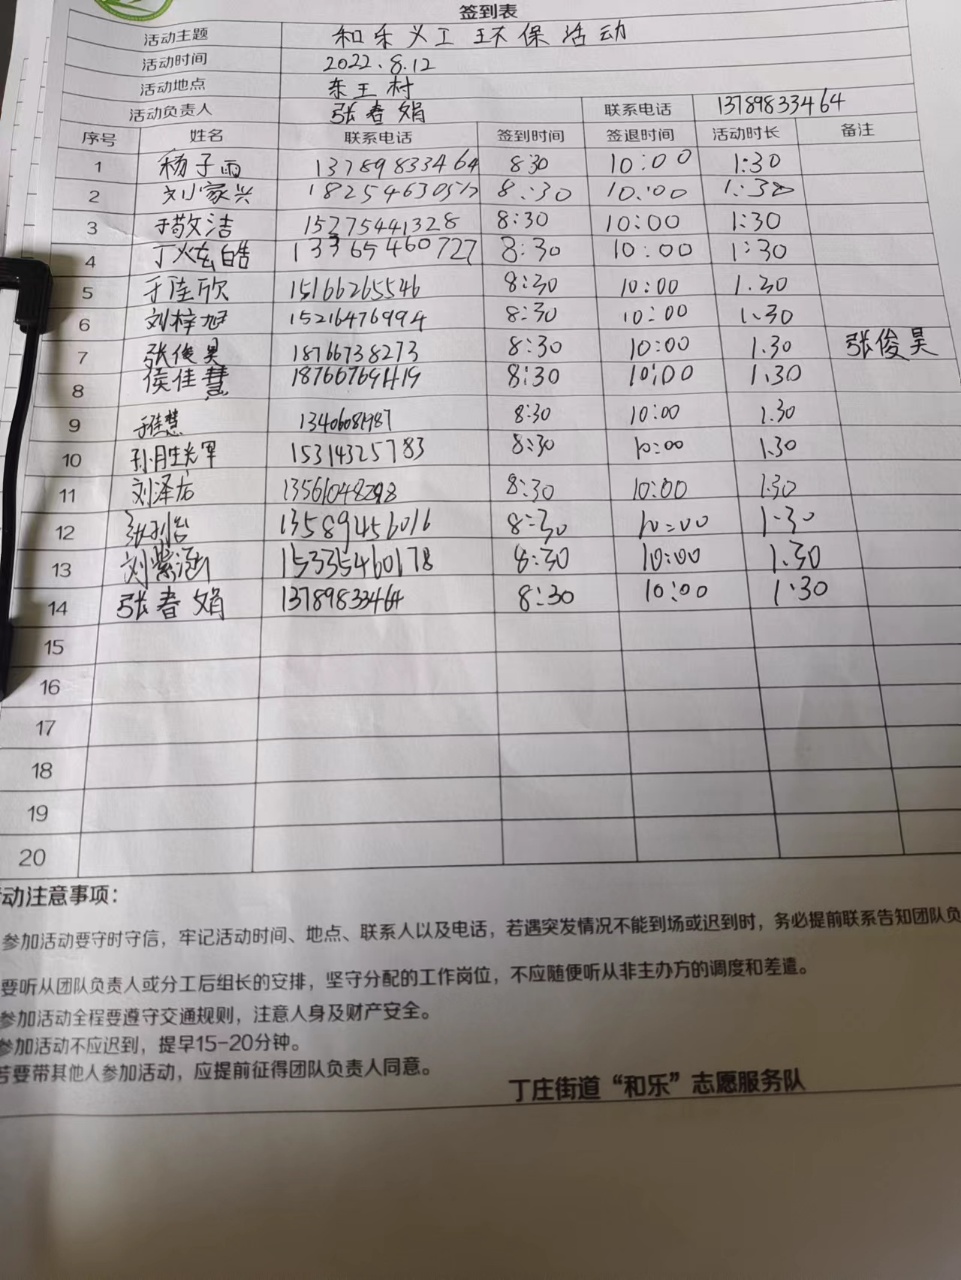 签到表
活动主题 和乐义工环保活动
活动时间 2022.8.12
活动地点 东王村
活动负责人 张春娟 联系电话 13789833464
序号 姓名 联系电话 签到时间 签退时间 活动时长 备注
1 杨子雨 13789833464 8:30 10:00 1:30
2 刘家兴 8:30 10:00 1:30
3 于敬洁 15275441328 8:30 10:00 1:30
4 丁炫皓 13365460727 8:30 10:00 1:30
5 于佳欣 15166265546 8:30 10:00 1.30
6 刘梓旭 15216476994 8:30 10:00 1.30
7 张俊昊 18766738273 8:30 10:00 1.30 张俊昊
8 侯佳慧 8:30 10:00 1.30
9 于佳慧 8:30 10:00 1.30
10 15314325783 8:30 10:00 1.30
11 刘泽龙 13561048298 8:30 10:00 1.30
12 13589456016 8:30 10:00 1.30
13 刘紫涵 15335460178 8:30 10:00 1.30
14 张春娟 13789833464 8:30 10:00 1:30
15
16
17
18
19
20
动注意事项：
参加活动要守时守信，牢记活动时间、地点、联系人以及电话，若遇突发情况不能到场或迟到时，务必提前联系告知团队负
要听从团队负责人或分工后组长的安排，坚守分配的工作岗位，不应随便听从非主办方的调度和差遣。
参加活动全程要遵守交通规则，注意人身及财产安全。
参加活动不应迟到，提早15-20分钟。
若要带其他人参加活动，应提前征得团队负责人同意。
丁庄街道“和乐”志愿服务队